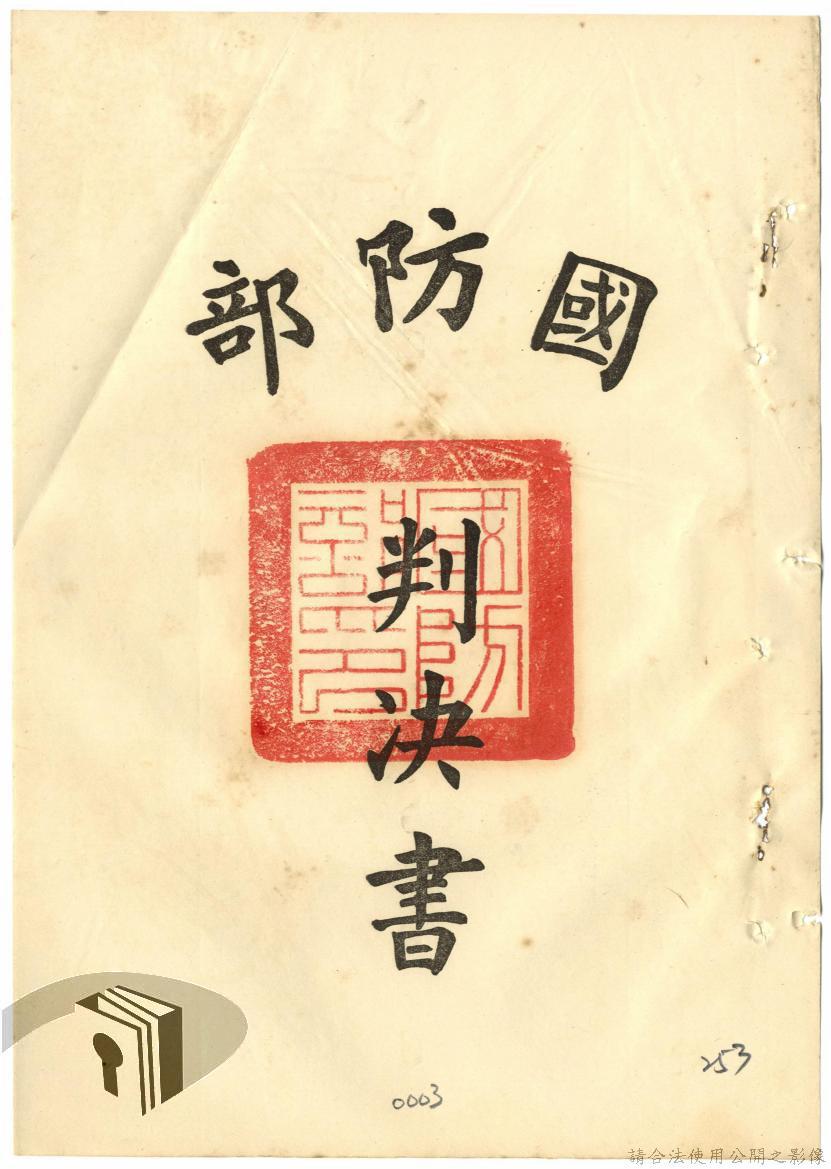 國防部
判決書
0003
253
請合法使用公開之影像